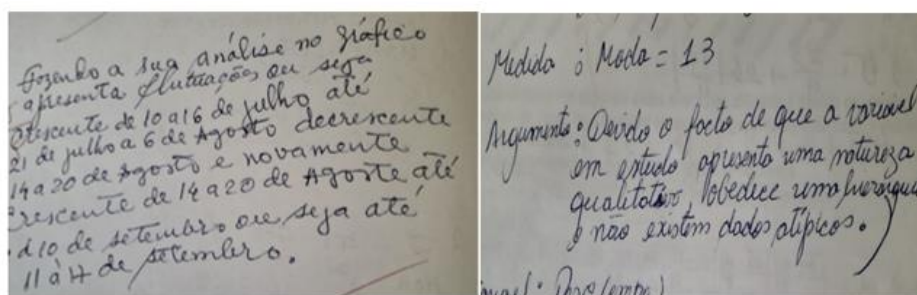 Fazendo a sua análise no gráfico
apresenta flutuações ou seja
crescente de 10 a 16 de julho até
21 de julho a 6 de Agosto decrescente
14 a 20 de Agosto e novamente
crescente de 14 a 20 de Agosto até
10 de setembro ou seja até
11 à 17 de setembro.
Medida : Moda = 13
Argumento : Devido o facto de que a variável
em estudo apresenta uma natureza
qualitativa, obedece uma hierarquia
e não existem dados atípicos.